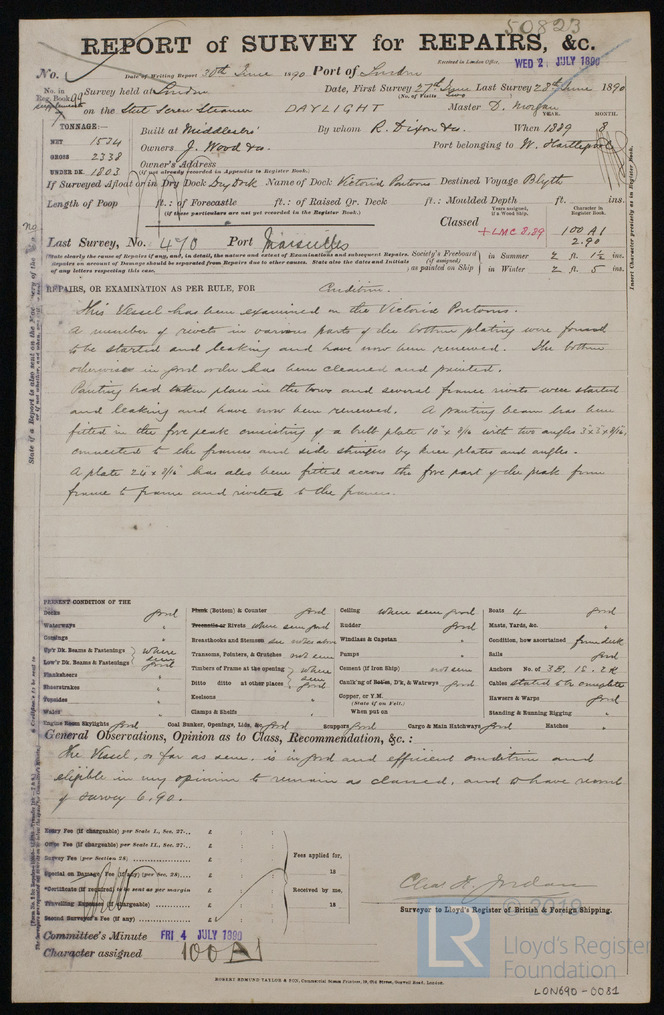 50823
REPORT of SURVEY for REPAIRS, &c.
Received in London Office, WED 2 JULY 1890
No. Date of Writing Report 30th June 1890 Port of London
No. in Reg. Book. Survey held at London Date, First Survey 27th June Last Survey 28th June 1890
(No. of Visits two)
on the Steel Screw Steamer DAYLIGHT Master D. Morgan
TONNAGE:—
YEAR. MONTH.
Built at Middlesbro' By whom R. Dixon & Co. When 1889 8
NET 1534
GROSS 2338
UNDER DK. 1803
Owners J. Wood & Co. Port belonging to W. Hartlepool
Owner's Address
(if not already recorded in Appendix to Register Book.)
If Surveyed Afloat or in Dry Dock Dry Dock Name of Dock Victoria Pontoons Destined Voyage Blyth
Length of Poop ft.: of Forecastle ft.: of Raised Qr. Deck ft.: Moulded Depth ft. ins.
(If these particulars are not yet recorded in the Register Book.)
Years assigned, if a Wood Ship. Character in Register Book.
Classed +LMC 8.89 100 A1
2.90
Last Survey, No. 470 Port Marseilles
(State clearly the cause of Repairs if any, and, in detail, the nature and extent of Examinations and subsequent Repairs. Repairs on account of Damage should be separated from Repairs due to other causes. State also the dates and initials of any letters respecting this case.
Society's Freeboard (if assigned) as painted on Ship
in Summer 2 ft. 1½ ins.
in Winter 2 ft. 5 ins.
Insert Character precisely as in Register Book.
REPAIRS, OR EXAMINATION AS PER RULE, FOR Condition.
This Vessel has been examined on the Victoria Pontoons.
A number of rivets in various parts of the bottom plating were found
to be started and leaking and have now been renewed. The bottom
otherwise in good order has been cleaned and painted.
Panting had taken place in the bows and several frame rivets were started
and leaking and have now been renewed. A panting beam has been
fitted in the fore peak consisting of a bulb plate 10" x 7/16 with two angles 3" x 3" x 7/16,
connected to the frames and side stringers by knee plates and angles.
A plate 24 x 7/16 has also been fitted across the fore part of the peak from
frame to frame and riveted to the frames.
PRESENT CONDITION OF THE
Decks good
Waterways "
Comings "
Up'r Dk. Beams & Fastenings where
Low'r Dk. Beams & Fastenings seen good
Planksheers
Sheerstrakes "
Topsides "
Wales "
Engine Room Skylights good
Plank (Bottom) & Counter good
Treenails or Rivets where seen good
Breasthooks and Stemson
Transoms, Pointers, & Crutches not seen
Timbers of Frame at the opening where
Ditto ditto at other places seen good
Keelsons "
Clamps & Shelfs "
Coal Bunker, Openings, Lids, &c. good
Ceiling where seen good
Rudder good
Windlass & Capstan "
Pumps "
Cement (if Iron Ship) not seen
Caulk'ng of Bottom, D'k, & Watrwys good
Copper, or Y.M.
(State if on Felt.)
When put on
Scuppers good Cargo & Main Hatchways good
Boats 4 good
Masts, Yards, &c. "
Condition, how ascertained from deck
Sails good
Anchors No. of 3B, 1S, 2K
Cables stated to be complete
Hawsers & Warps good
Standing & Running Rigging "
Hatches "
General Observations, Opinion as to Class, Recommendation, &c.:
The Vessel, so far as seen, is in good and efficient condition and
eligible in my opinion to remain as classed, and to have record
of survey 6.90.
Entry Fee (if chargeable) per Scale I., Sec. 27... £ : :
Office Fee (if chargeable) per Scale II., Sec. 27... £ : :
Survey Fee (per Section 28) £ : :
Special on Damage, Fee (if any) (per Sec. 28) £ : :
*Certificate (if required) to be sent as per margin £ : :
Travelling Expenses (if chargeable) £ : :
Second Surveyor's Fee (if any) £ : :
Fees applied for,
18
Received by me,
18
Chas H. Jordan
Surveyor to Lloyd's Register of British & Foreign Shipping.
Committee's Minute FRI 4 JULY 1890
Character assigned 100 A1
© 2019
LR
Lloyd's Register
Foundation
ROBERT EDMUND TAYLOR & SON, Commercial Steam Printers, 19, Old Street, Goswell Road, London.
LON690-0031